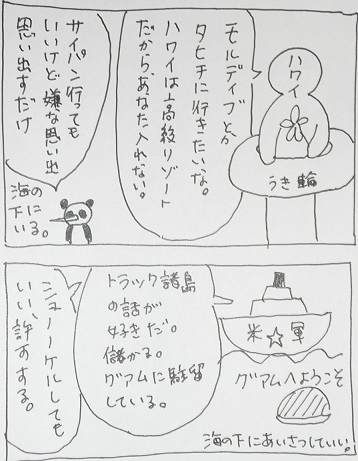 ハワイ
うき輪
モルディブとか
タヒチに行きたいな。
ハワイは高級リゾート
だから、あなた入れない。
サイパン行っても
いいけど嫌な思い出
思い出すだけ
海の
下に
いる。
米☆軍
グアムへようこそ
トラック諸島
の話が
好きだ。
儲かる。
グアムに駐留
している。
シュノーケルしても
いい、許すする。
海の下にあいさつしていい。